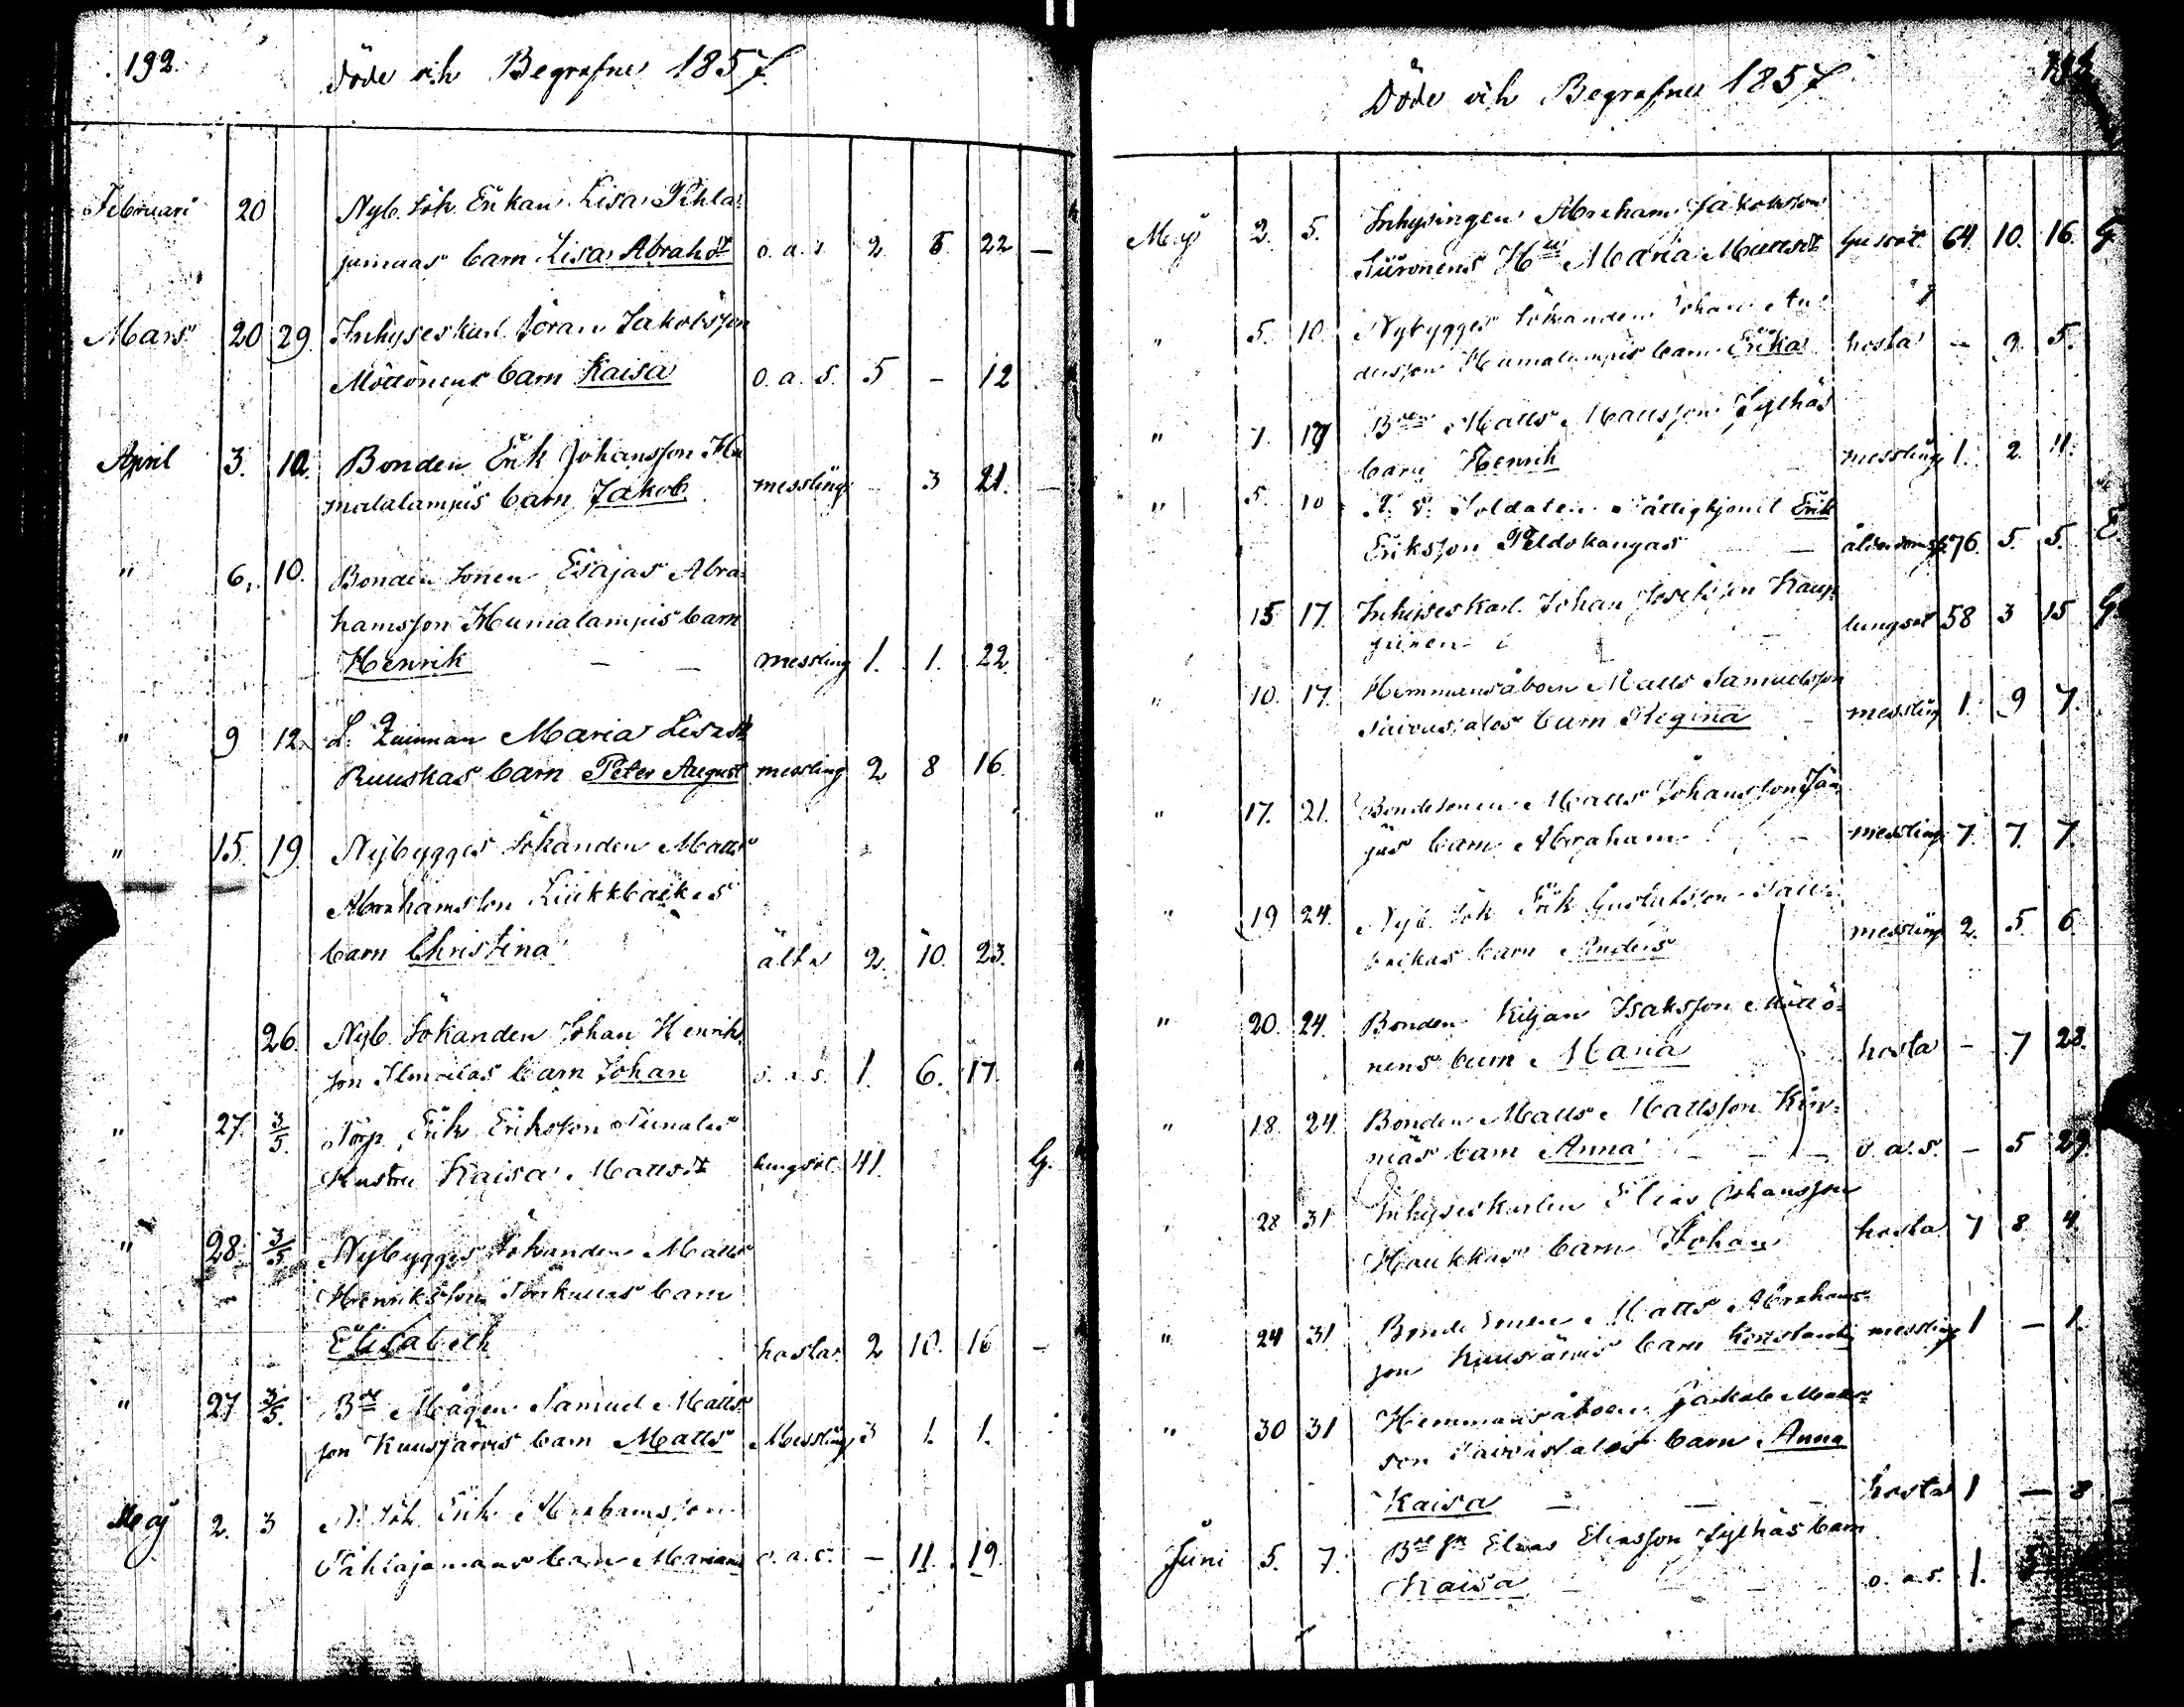 192.
Döde och Begrafne 1857.
Februari 20 Nyb. Sök. Enkan Lisa Pihla-
jamaas barn Lisa Abrahdt o. a. s. 2 5 22 —
Mars 20 29. Inhyseskarl. Göran Jakobsson
Möttönens barn Kaisa o. a. s. 5 - 12
April 3. 10. Bonden Erik Johansson Hu
malalampis barn Jakob messling - 3 21. —
" 6. 10. Bonden Sonen Esajas Abra-
hamsson Humalampis barn
Henrik — — messling 1. 1. 22.
" 9 12. L. Quinnan Maria Lisasdt
Ruuskas barn Peter August messling 2 8 16.
" 15. 19. Nybygges Sökanden Matts
Abrahamsson
barn Christina ältn 2. 10. 23.
26. Nyb. Sökanden Johan Henriks
son barn Johan o. a. s. 1. 6. 17.
" 27. 3/5. Torp. Erik Eriksson
Hustru Kaisa Mattsdt lungsot 41. G.
" 28. 3/5 Nybygges Sökanden Matts
Henriksson barn
Elisabeth hosta 2 10. 16 —
" 27 3/5. Bde Mågen Samuel Matts
son Kuusjarvis barn Matts Messling 3 1. 1.
Maj 2. 3 N. Sök. Erik Abrahamsson
Pihlajamaas barn Mariana o. a. s. — 11. 19.
Döde och Begrafne 1857
Maj 2. 5. Inhysingen Abraham Jakobsson
Hu Maria Mattsdt lungsot. 64. 10. 16. G.
" 5. 10. Nybygges Sökanden Johan An-
dersson Humalampis barn Erika hosta — 9. 5.
" 7. 17 Bden Matts Mattsson Sylhäs
barn Henrik messling 1. 2. 11.
" 5. 10 Soldaten Fättighjonet Erik
Eriksson Peldokangas — ålderdomsb. 76. 5. 5. E
15 17. Inhyseskarl. Johan Josefsson Kaup-
pinen lungsot 58 3 15 G.
" 10. 17. Hemmansåboen Matts Samuelsson
barn Regina messling 1. 9 7.
" 17. 21. Bondesonen Matts Johansson
jas barn Abraham — messling 7. 7. 7.
" 19 24. Nyb. Sök. Erik Gustafsson
barn Anders messling 2. 5. 6.
" 20. 24. Bonden Kiljan Isaksson Möttö-
nens barn Maria hosta — 7 28.
" 18. 24. Bonden Matts Mattsson Kiv-
niäs barn Anna — — — o. a. s. — 5 29.
" 28 31 Inhyseskarlen Elias Johansson
Haukkas barn Johan hosta 7 8 4.
" 24 31 Bonde Sonen Matts Abrahams-
son barn messling 1 — 1.
" 30 31 Hemmansåboen Jakob Matts-
son barn Anna
Kaisa — — hosta 1 — 8
Juni 5. 7. Elias Eliasson Sylhäs barn
Kaisa — — o. a. s. 1.